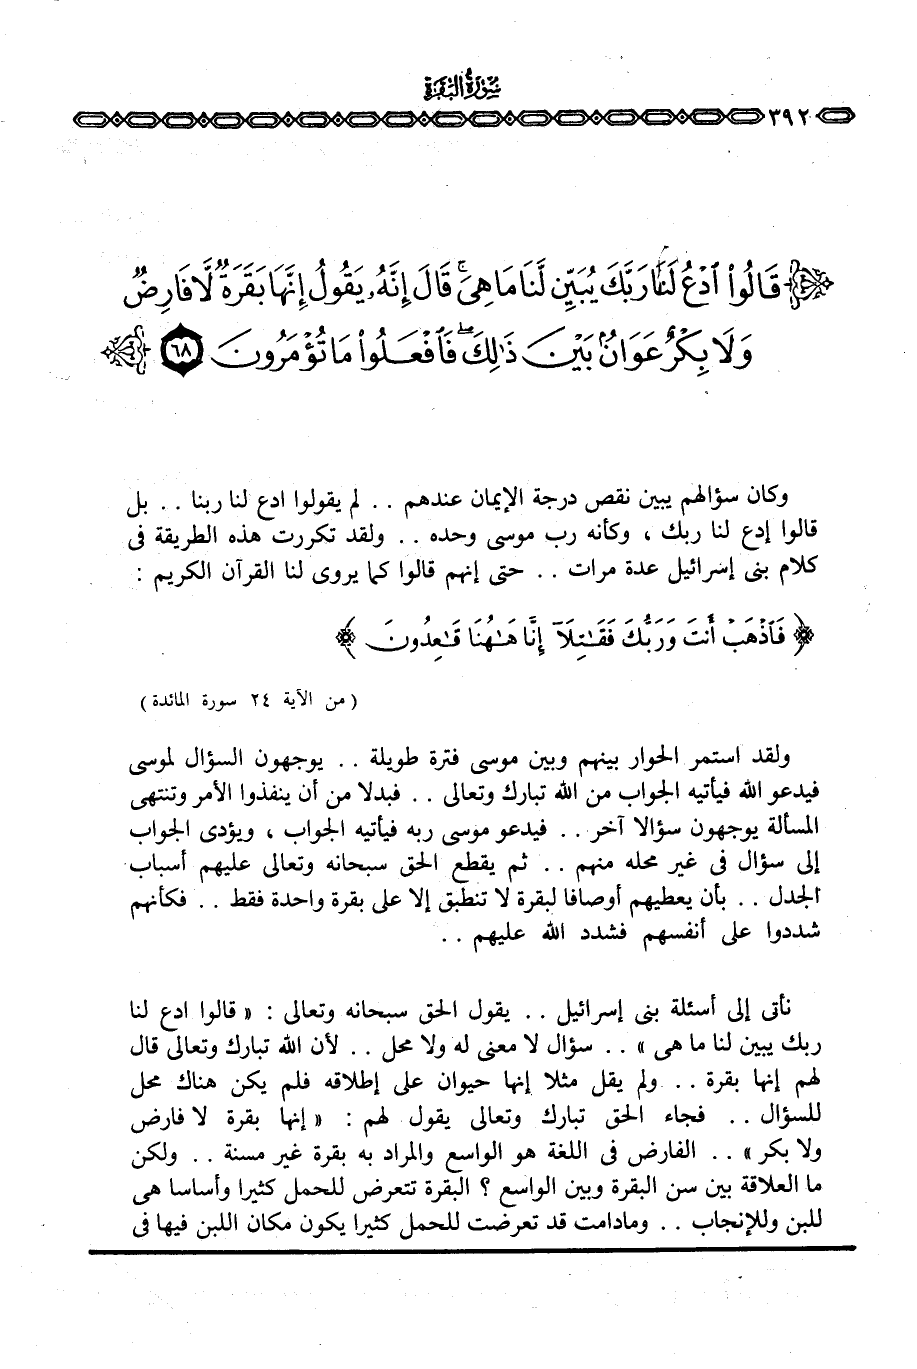 سورة البقرة
٣٩٢
قَالُوا۟ ٱدْعُ لَنَا رَبَّكَ يُبَيِّن لَّنَا مَا هِىَ ۚ قَالَ إِنَّهُۥ يَقُولُ إِنَّهَا بَقَرَةٌ لَّا فَارِضٌ
وَلَا بِكْرٌ عَوَانٌۢ بَيْنَ ذَٰلِكَ ۖ فَٱفْعَلُوا۟ مَا تُؤْمَرُونَ ٦٨
وكان سؤالهم يبين نقص درجة الإيمان عندهم .. لم يقولوا ادع لنا ربنا .. بل
قالوا إدع لنا ربك ، وكأنه رب موسى وحده .. ولقد تكررت هذه الطريقة فى
كلام بنى إسرائيل عدة مرات .. حتى إنهم قالوا كما يروى لنا القرآن الكريم :
﴿ فَٱذْهَبْ أَنتَ وَرَبُّكَ فَقَٰتِلَآ إِنَّا هَٰهُنَا قَٰعِدُونَ ﴾
( من الآية ٢٤ سورة المائدة )
ولقد استمر الحوار بينهم وبين موسى فترة طويلة .. يوجهون السؤال لموسى
فيدعو الله فيأتيه الجواب من الله تبارك وتعالى .. فبدلا من أن ينفذوا الأمر وتنتهى
المسألة يوجهون سؤالا آخر .. فيدعو موسى ربه فيأتيه الجواب ، ويؤدى الجواب
إلى سؤال فى غير محله منهم .. ثم يقطع الحق سبحانه وتعالى عليهم أسباب
الجدل .. بأن يعطيهم أوصافا لبقرة لا تنطبق إلا على بقرة واحدة فقط .. فكأنهم
شددوا على أنفسهم فشدد الله عليهم ..
نأتى إلى أسئلة بنى إسرائيل .. يقول الحق سبحانه وتعالى : « قالوا ادع لنا
ربك يبين لنا ما هى » .. سؤال لا معنى له ولا محل .. لأن الله تبارك وتعالى قال
لهم إنها بقرة .. ولم يقل مثلا إنها حيوان على إطلاقه فلم يكن هناك محل
للسؤال .. فجاء الحق تبارك وتعالى يقول لهم : « إنها بقرة لا فارض
ولا بكر » .. الفارض فى اللغة هو الواسع والمراد به بقرة غير مسنة .. ولكن
ما العلاقة بين سن البقرة وبين الواسع ؟ البقرة تتعرض للحمل كثيرا وأساسا هى
للبن وللإنجاب .. ومادامت قد تعرضت للحمل كثيرا يكون مكان اللبن فيها فى